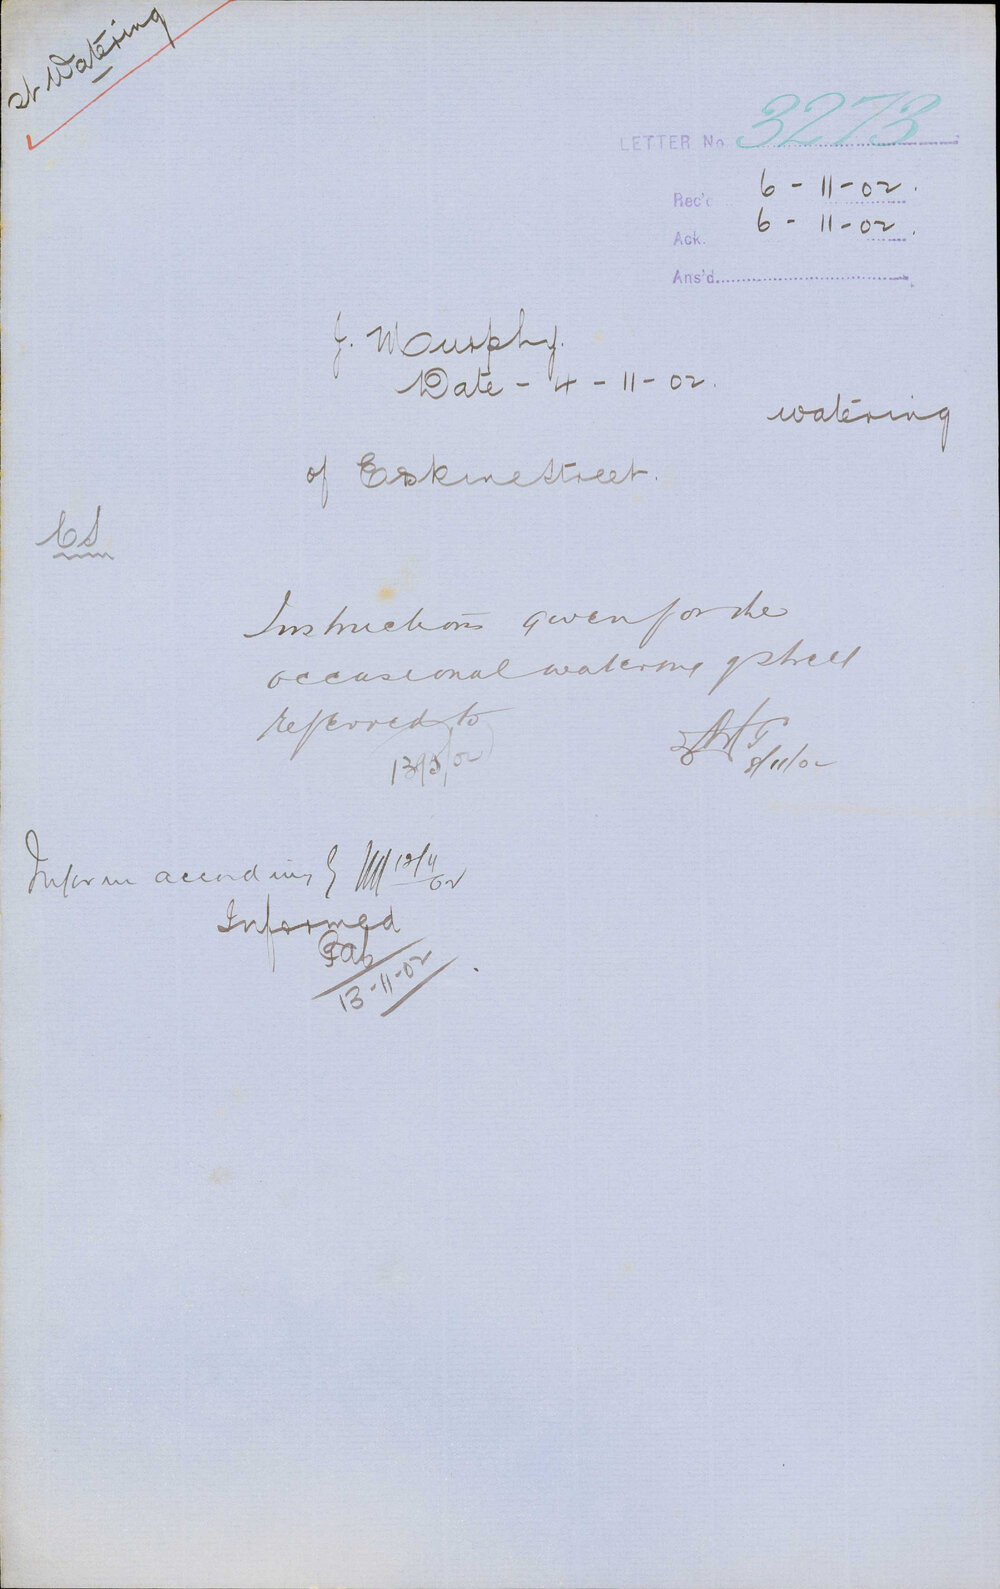 St Watering
LETTER No 3273
Rec'd 6-11-02.
Ack. 6-11-02.
Ans'd.
J. Murphy.
Date - 4-11-02.
watering
of Erskine Street.
CS
Instructions given for the
occasional watering of street
referred to
8/11/02
Inform accordingly
Informed
13-11-02